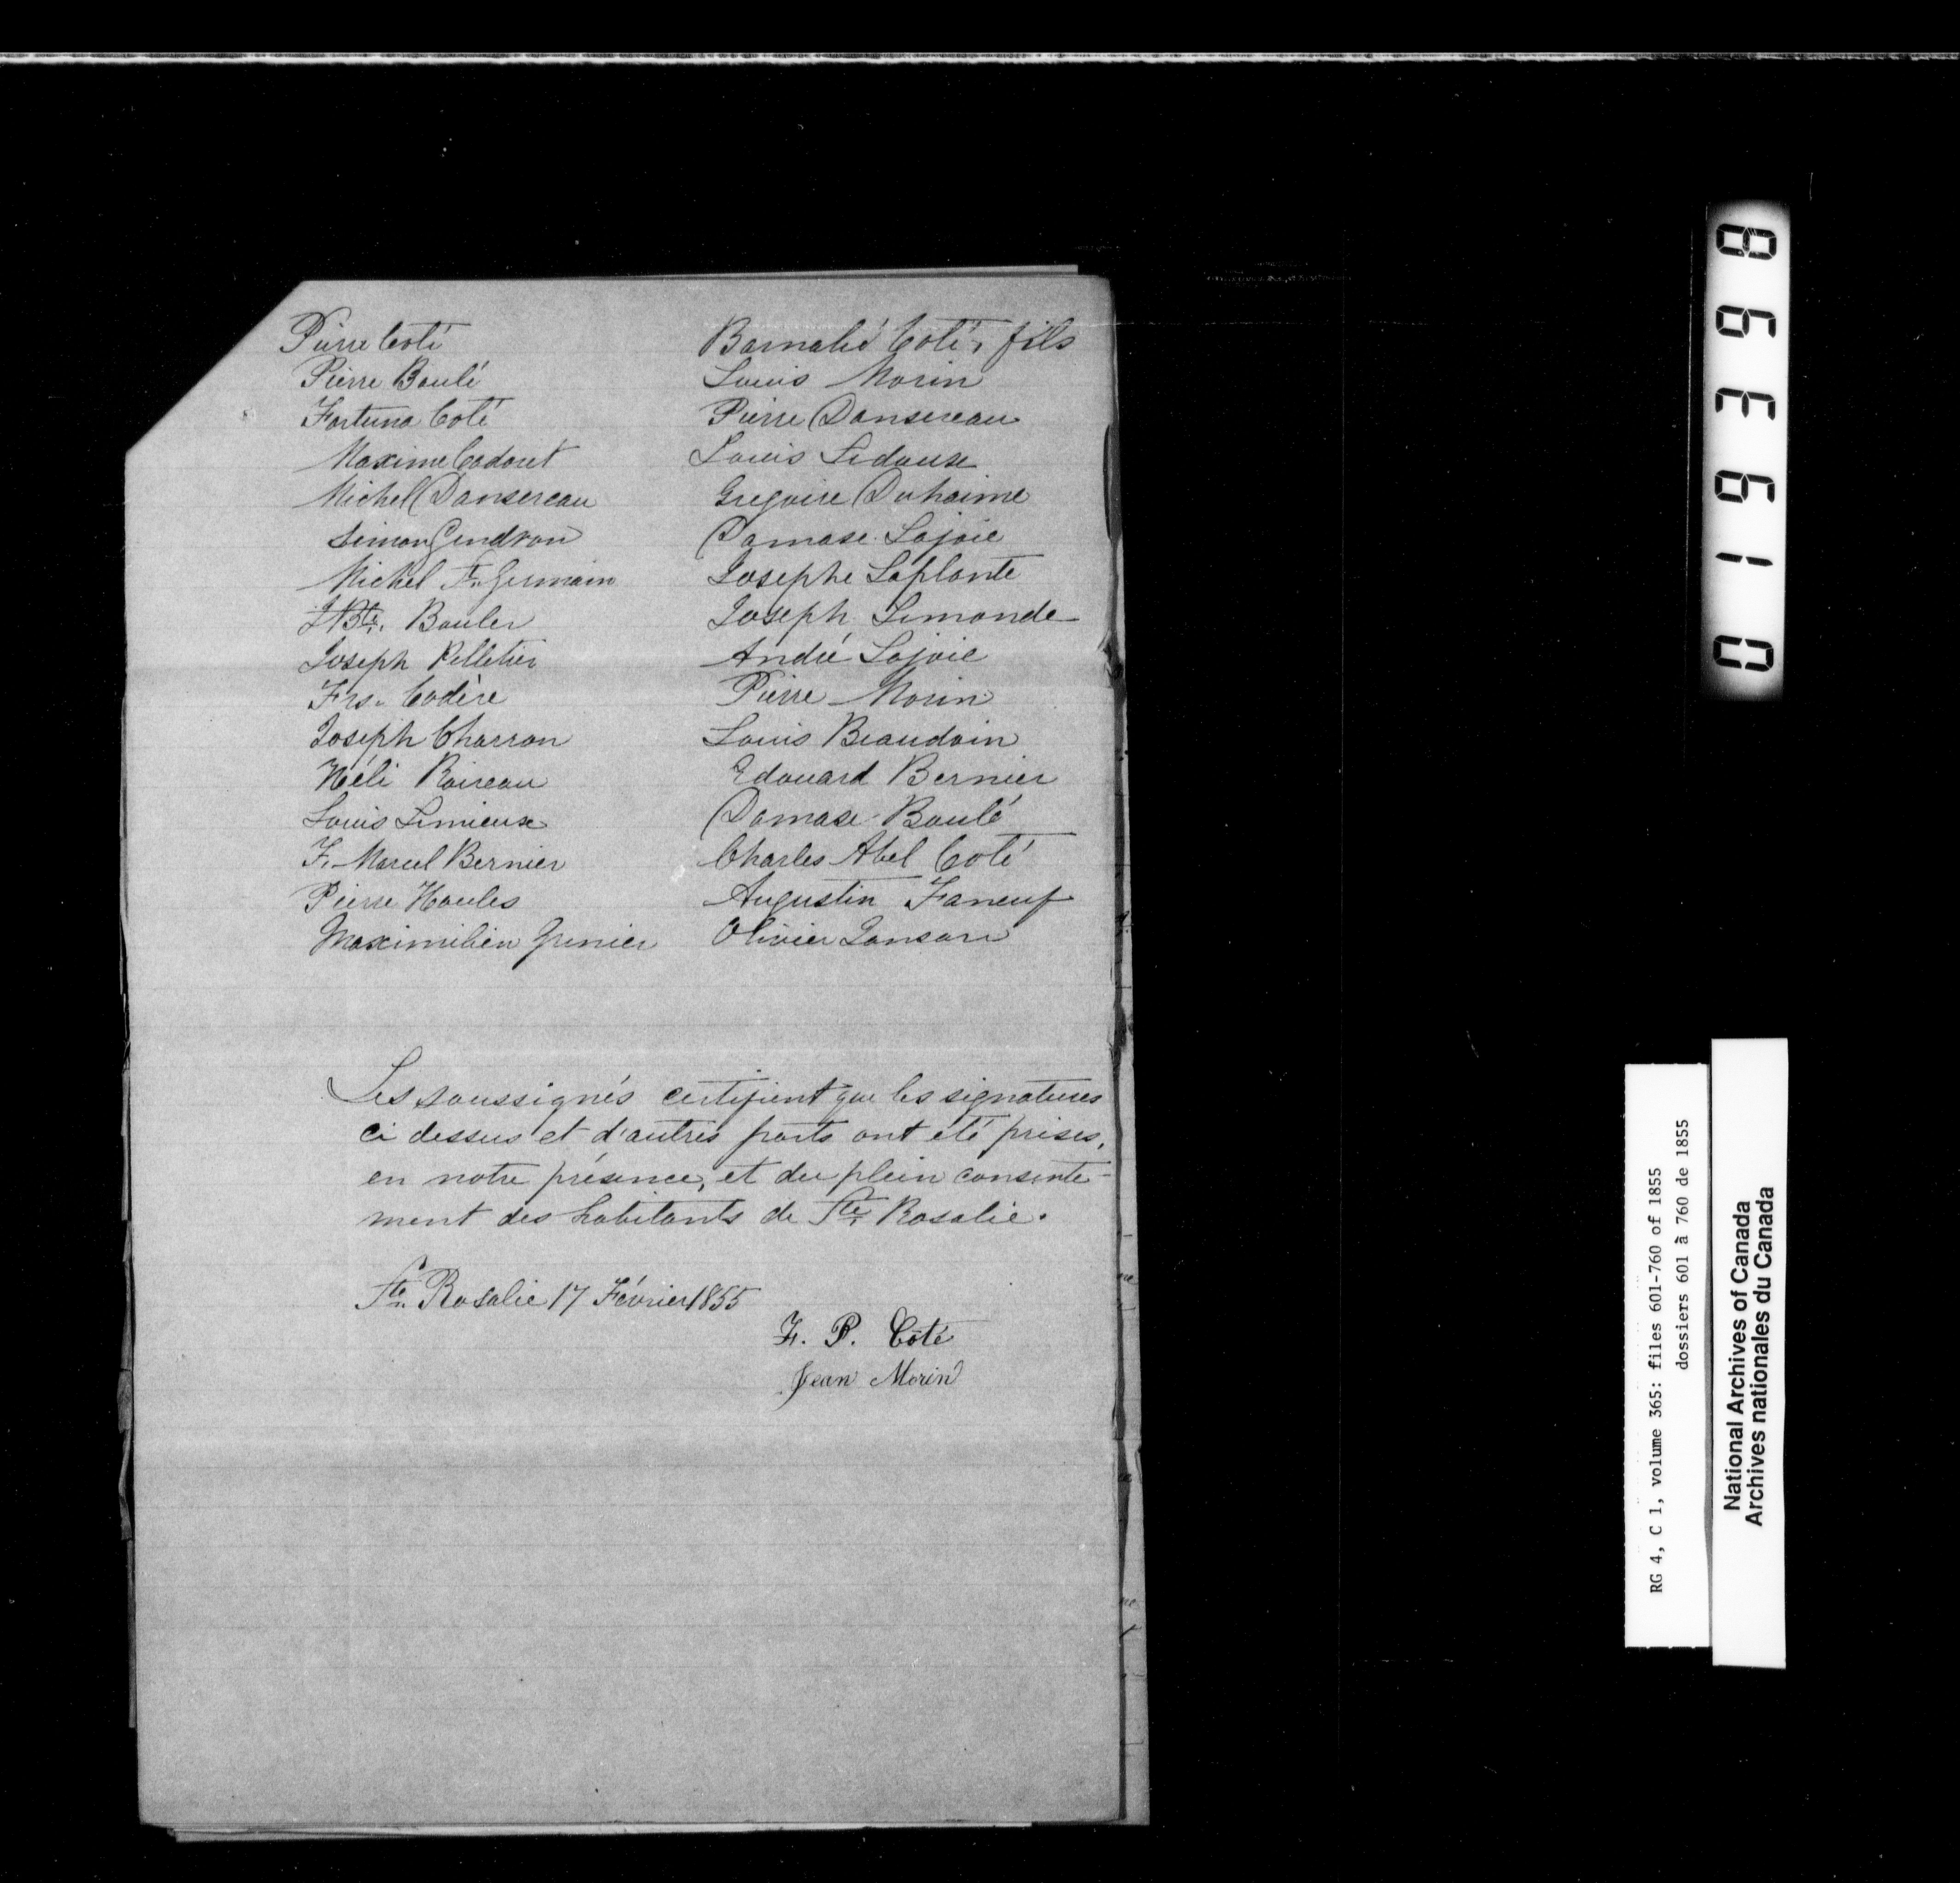 Pierre Coté
Pierre Boulé
Fortuna Coté
Maxime Cadoret
Michel Dansereau
Simon Gendron
Michel F. Germain
J Bte. Bouler
Joseph Pelletier
Frs. Codère
Joseph Charron
Héli Roireau
Louis Lemieux
F. Marcel Bernier
Pierre Houles
Maximilien Grenier
Barnabé Coté, fils
Louis Morin
Pierre Dansereau
Louis Ledouse
Gregoire Duhaime
Damase Lajoie
Josephe Laplante
Joseph Simonde
André Lajoie
Pierre Morin
Louis Beaudoin
Edouard Bernier
Damase Boulé
Charles Abel Coté
Augustin Faneuf
Olivier Janson
Les soussignés certifient que les signatures
ci dessus et d'autres parts ont été prises,
en notre présence, et du plein consente-
ment des habitants de Ste. Rosalie.
Ste. Rosalie 17 Février 1855
F. P. Côté
Jean Morin
016368
RG 4, C 1, volume 365: files 601-760 of 1855
dossiers 601 à 760 de 1855
National Archives of Canada
Archives nationales du Canada